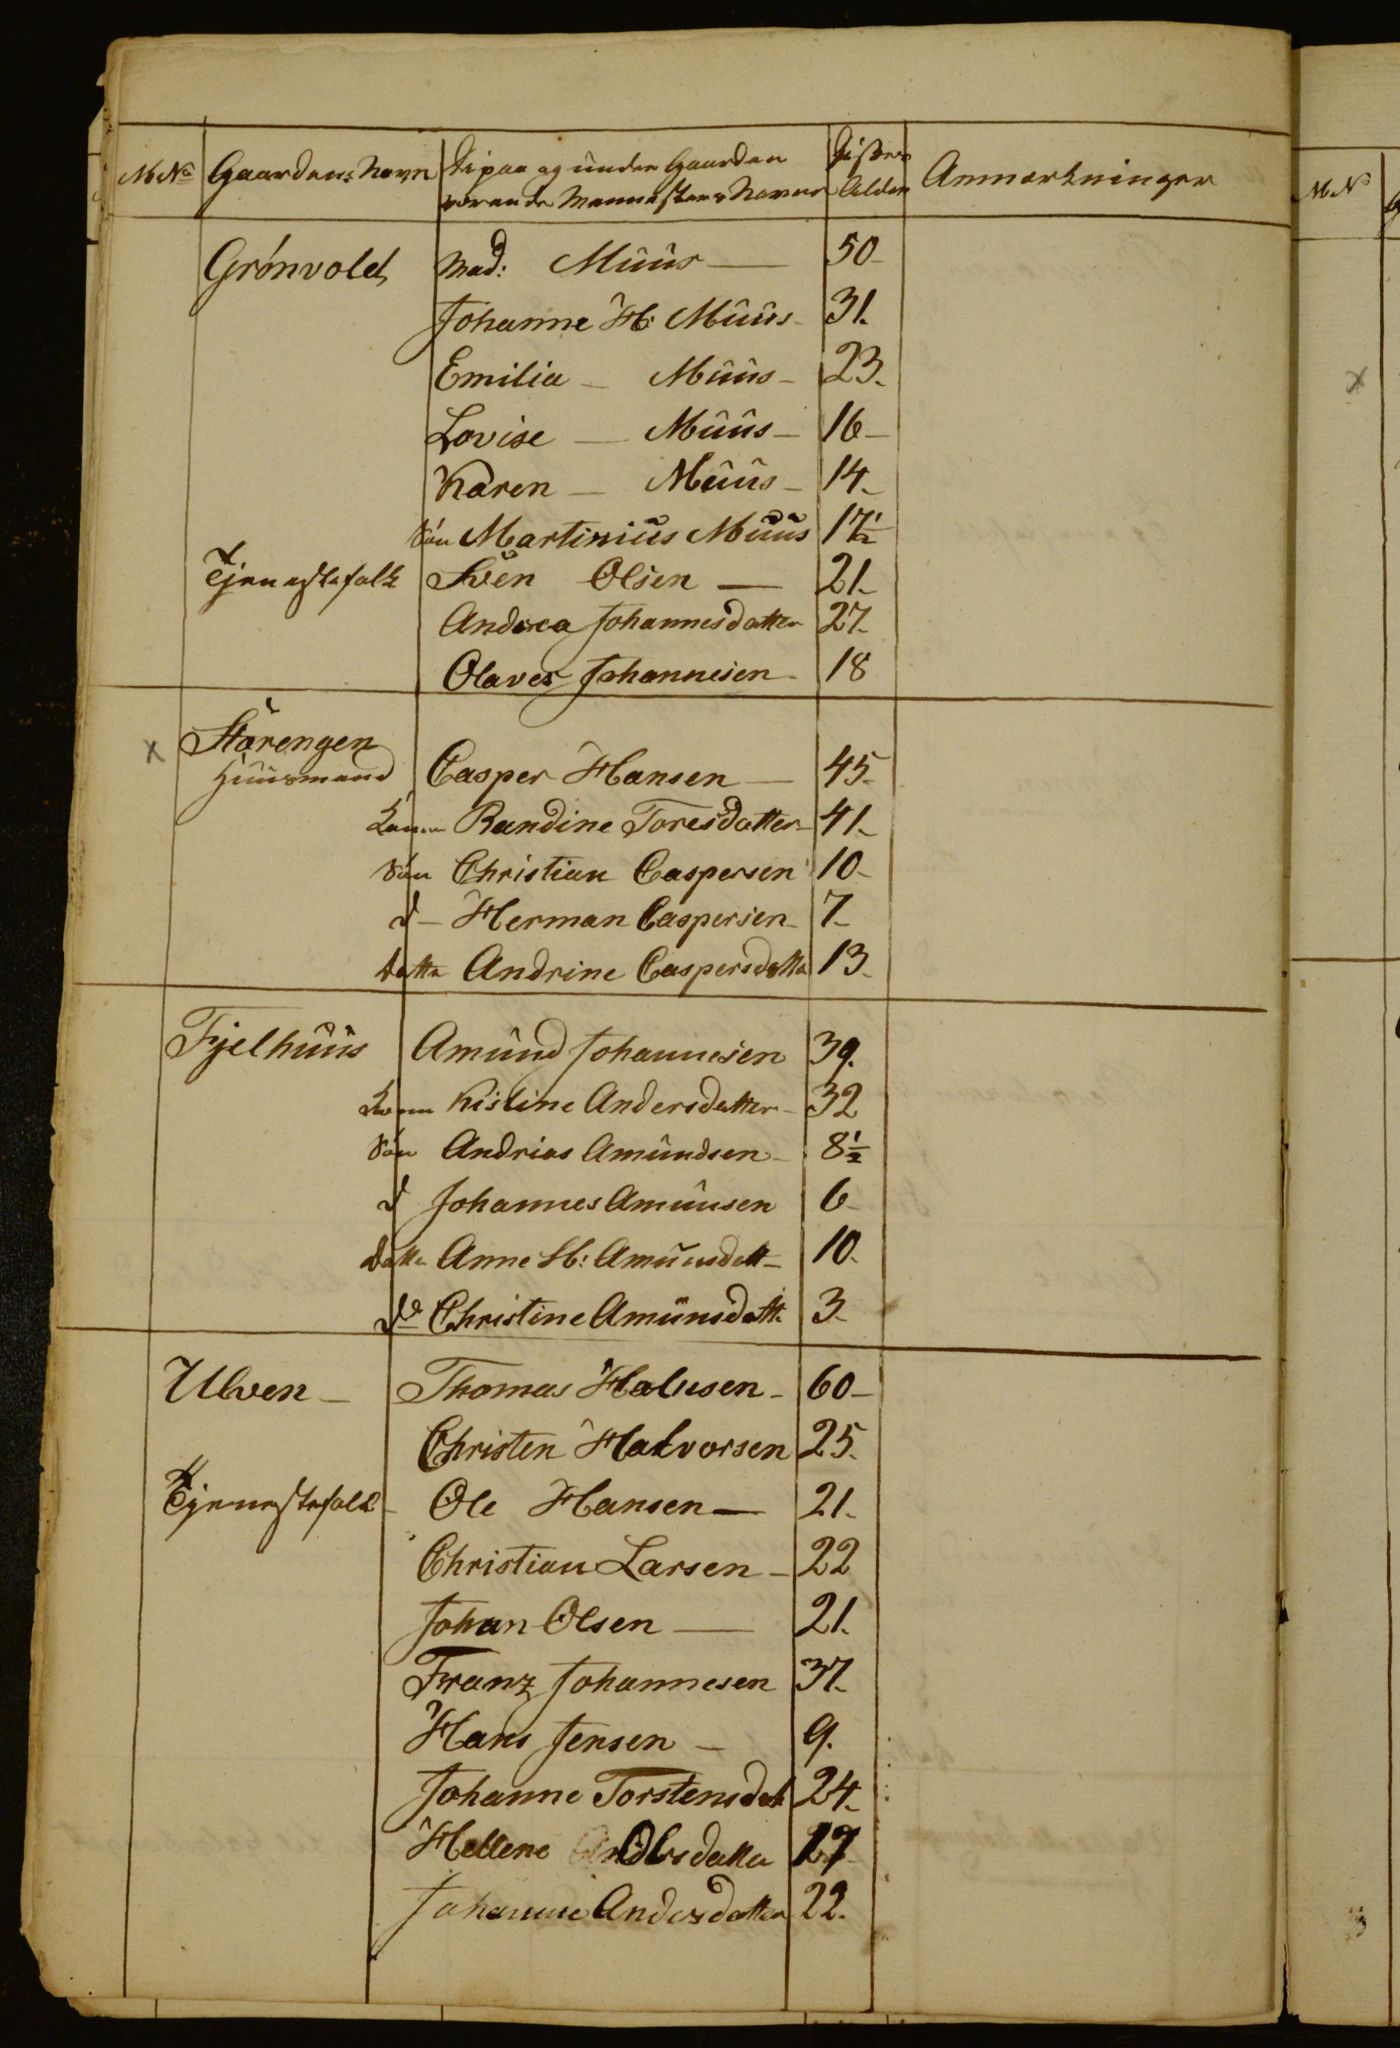 M No Gaardens Navn De paa og under Gaarden Disses Anmærkninger
værende Menneskers Navne Alder
Grönvold Mad: Muus 50
Johanne H: Muus 31.
Emilia Muus 23.
Lovise Muus 16
Karen Muus 14
Sön Martinius Muus 17½
Tjenestefolk Sven Olsen 21
Andrea Johannesdatter 27
Olaves Johannesen 18
x Störengen
Huusmand Casper Hansen 45
Konen Randine Toresdatter 41
Sön Christian Caspersen 10
d Herman Caspersen 7
Datter Andrine Caspersdatter 13
Fjelhuus Amund Johannesen 39.
Konen Kistine Andersdatter 32
Sön Andrias Amundsen 8½
d Johannes Amunsen 6
Datter Anne H: Amunsdatt 10
do Christine Amunsdatt 3
Ulven Thomas Halvsen 60
Christen Halvorsen 25.
Tjenestefolk Ole Hansen 21.
Christian Larsen 22
Johan Olsen 21.
Franz Johannesen 37
Hans Jensen 9.
Johanne Torstensdat 24
Hellene Olsdatter 17
Johanne Andersdatter 22.
M N
x